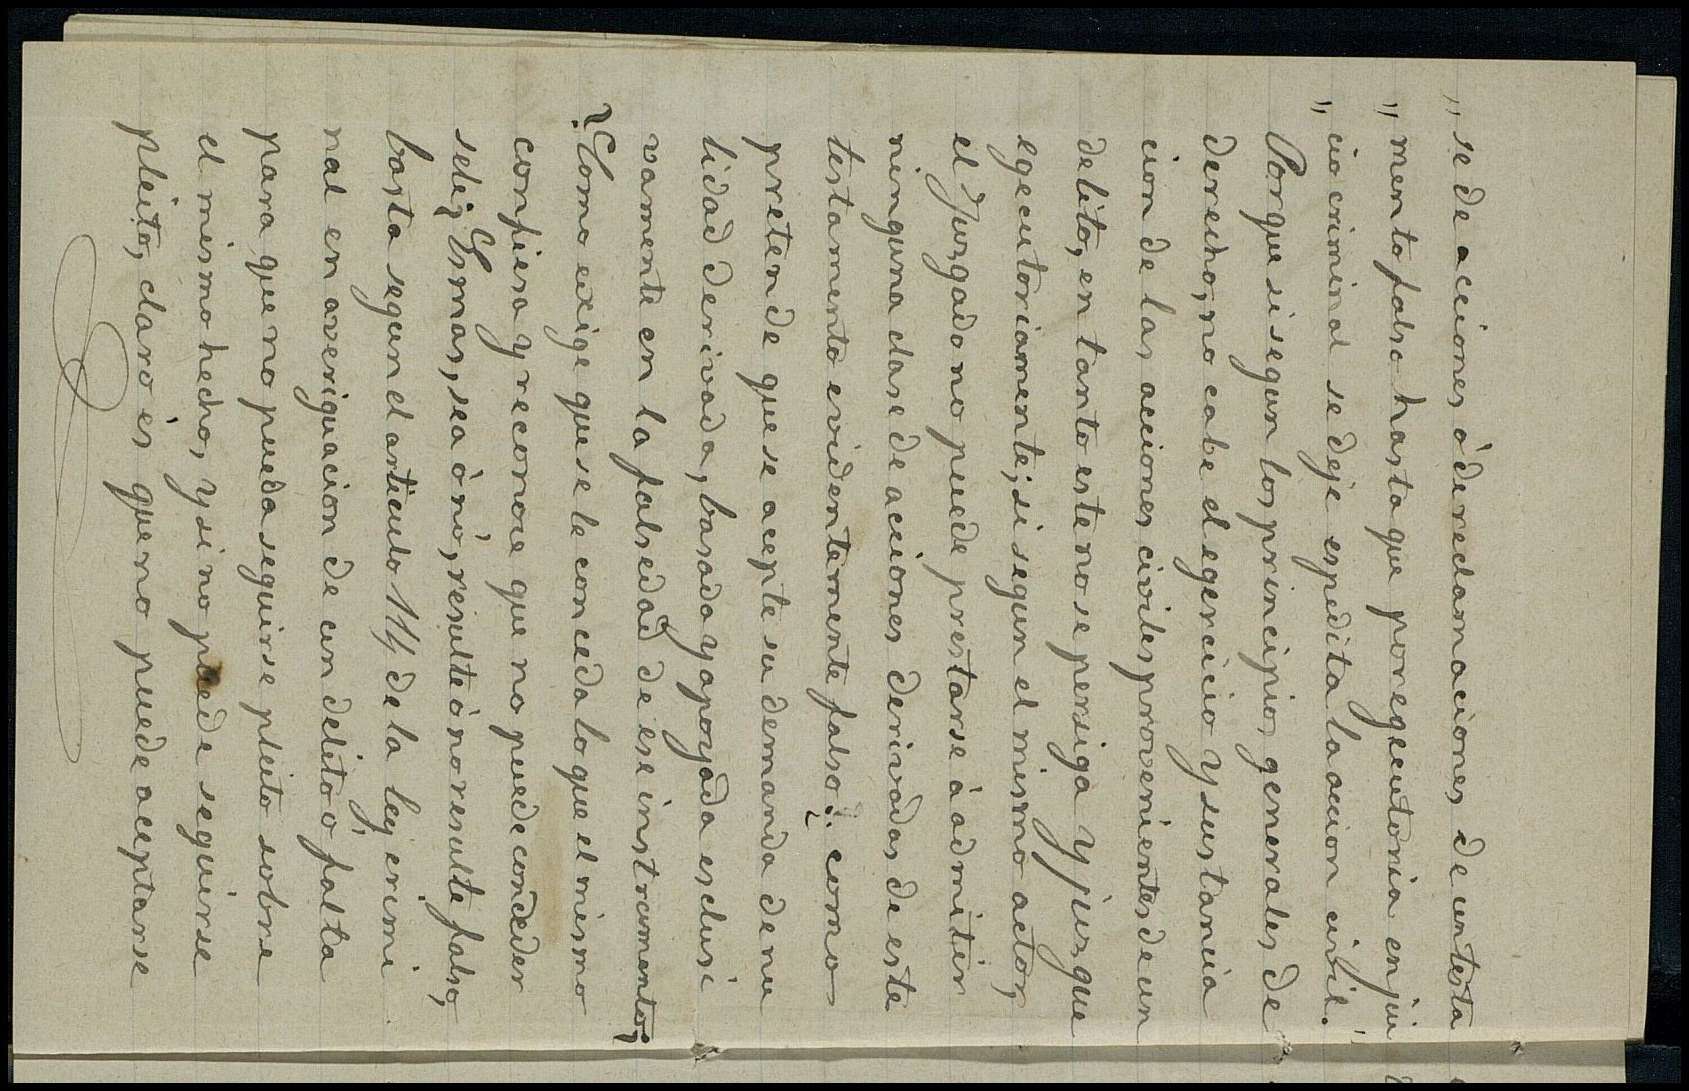 „ se de acciones ó de reclamaciones de un testa
„ mento falso hasta que por egecutoria en jui
„ cio criminal se deje espedita la accion civil.
Porque si segun los principios generales de
derecho, no cabe el egercicio y sustancia
cion de las acciones civiles provenientes de un
delito, en tanto este no se persiga y juzgue
egecutoriamente; si segun el mismo actor,
el Juzgado no puede prestarse á admitir
ninguna clase de acciones derivadas de este
testamento evidentemente falso: como
pretende que se acepte su demanda de nu
lidad derivada, basada y apoyada esclusi
vamente en la falsedad de ese instrumento;
¿Como exige que se le conceda lo que el mismo
confiesa y reconoce que no puede conceder
sele; Es mas, sea ó nó, resulte ó no resulte falso,
basta segun el articulo 114 de la ley crimi
nal en averiguacion de un delito o falta
para que no pueda seguirse pleito sobre
el mismo hecho, y si no puede seguirse
pleito, claro és que no puede aceptarse